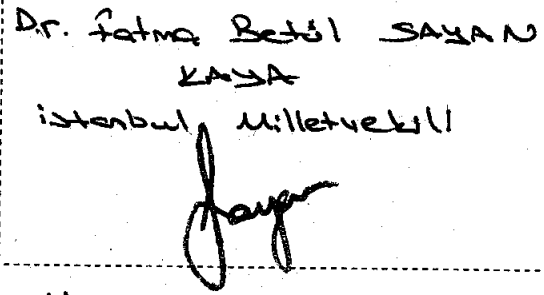 Dr. Fatma Betül SAYAN
KAYA
İstanbul Milletvekili